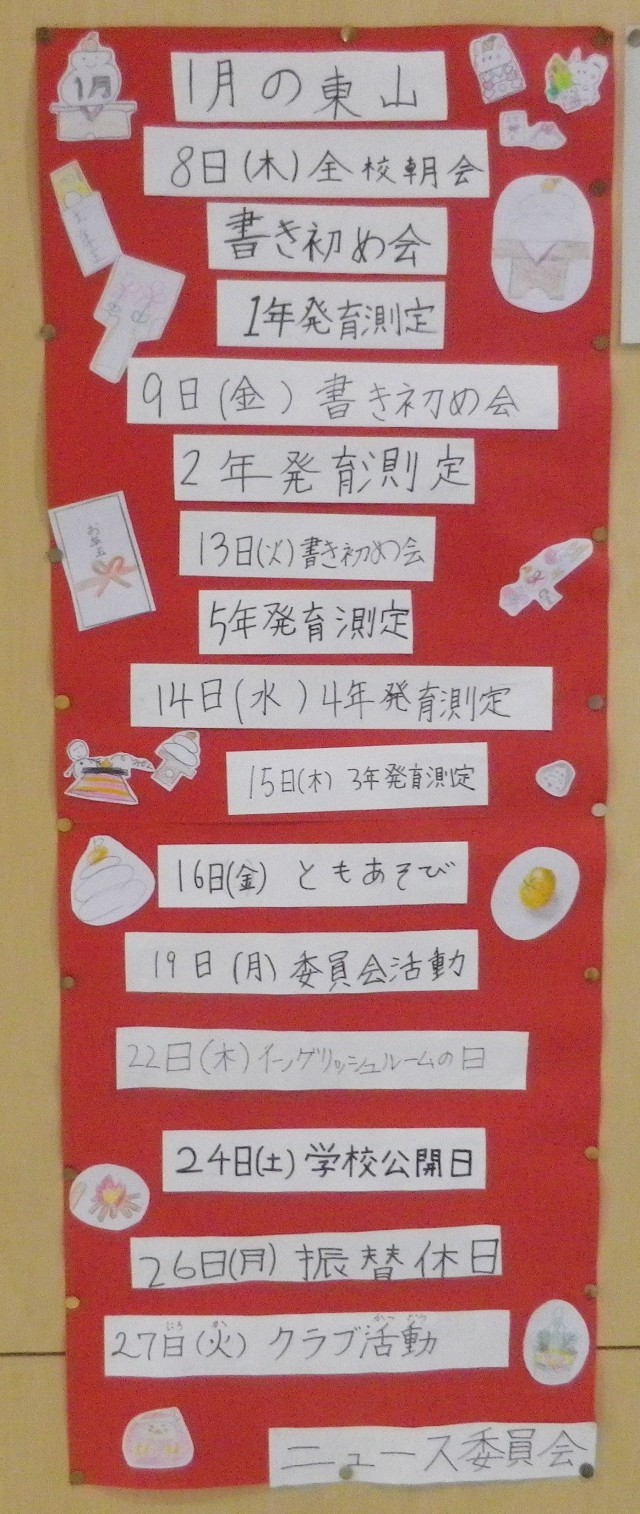 1月の東山
8日(木)全校朝会
書き初め会
1年発育測定
9日(金)書き初め会
2年発育測定
13日(火)書き初め会
5年発育測定
14日(水)4年発育測定
15日(木)3年発育測定
16日(金)ともあそび
19日(月)委員会活動
22日(木)イングリッシュルームの日
24日(土)学校公開日
26日(月)振替休日
27日(火)クラブ活動
ニュース委員会
1月
お年玉
お年玉